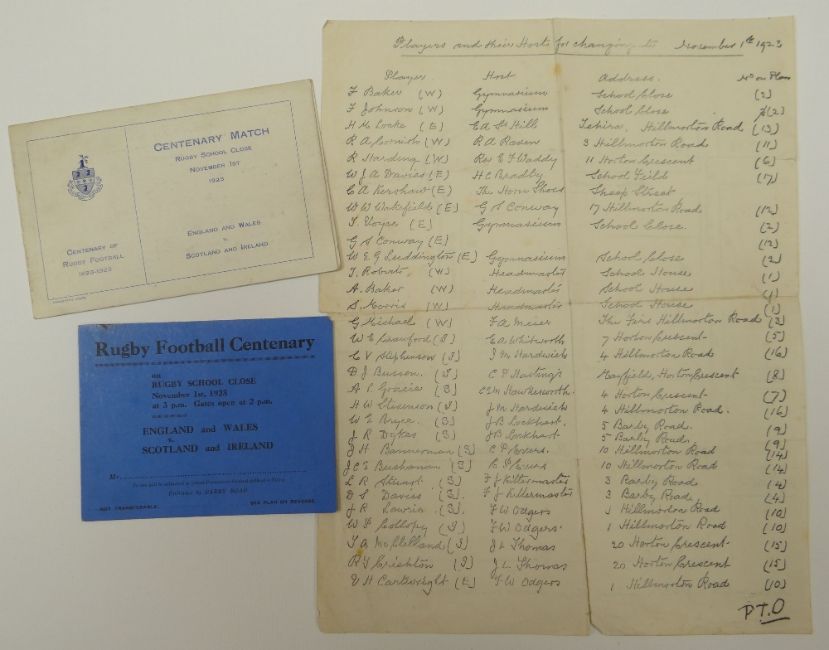 CENTENARY MATCH
RUGBY SCHOOL CLOSE
NOVEMBER 1ST
1923
ENGLAND AND WALES
v.
SCOTLAND AND IRELAND
CENTENARY OF
RUGBY FOOTBALL
1823-1923
Rugby Football Centenary
ON
RUGBY SCHOOL CLOSE
November 1st, 1923
at 3 p.m. Gates open at 2 p.m.
ENGLAND and WALES
v.
SCOTLAND and IRELAND
Mr.
Entrance by BARBY ROAD
NOT TRANSFERABLE. SEE PLAN ON REVERSE.
Players and their Hosts for changing November 1st 1923
Player Host Address. No on Plan
F Baker (W) Gymnasium School Close (2)
F Johnson (W) Gymnasium School Close (2)
H M Locke (E) E A St Hill Hillmorton Road (13)
R A Cornish (W) R A Raven 3 Hillmorton Road (11)
R Harding (W) Rev E F Waddy 11 Horton Crescent (6)
W J A Davies (E) H C Bradby School Field (17)
C A Kershaw (E) The Horse Shoes Sheep Street
W W Wakefield (E) G S Conway 17 Hillmorton Road (12)
T. Voyce (E) Gymnasium School Close. (2)
G S Conway (E) (2)
W E G Luddington (E) Gymnasium School Close (2)
T. Roberts (W) Headmaster School House (1)
A. Baker (W) Headmaster School House (1)
S. Morris (W) Headmaster School House (1)
G Michael (W) The Firs Hillmorton Road
W E Crawford (I) E A Whitworth 7 Horton Crescent (5)
G V Stephenson (I) J M Hardwich 4 Hillmorton Road (16)
D J Cussen. (I) C P Hastings Horton Crescent (8)
A L Gracie (S) C E M Hawkesworth. 4 Horton Crescent (7)
H W Stevenson (I) J M Hardwich 4 Hillmorton Road. (16)
W E Bryce. (S) J B Lockhart. 5 Barby Road. (9)
J R Dykes (S) J B Lockhart 5 Barby Road. (9)
J H Bannerman (S) C P Evers. 10 Hillmorton Road (14)
J C R Buchanan (S) C P Evers 10 Hillmorton Road (14)
L M Stuart. (S) F J Kittermaster 3 Barby Road (4)
D S Davies (S) F J Kittermaster 3 Barby Road, (4)
J R Lawrie. (S) F W Odgers 1 Hillmorton Road (10)
W P Collopy (I) F W Odgers. 1 Hillmorton Road (10)
T A McClelland (I) J L Thomas 20 Horton Crescent (15)
R Y Crichton (I) J L Thomas 20 Horton Crescent (15)
V H Cartwright (E) F W Odgers 1 Hillmorton Road (10)
P.T.O